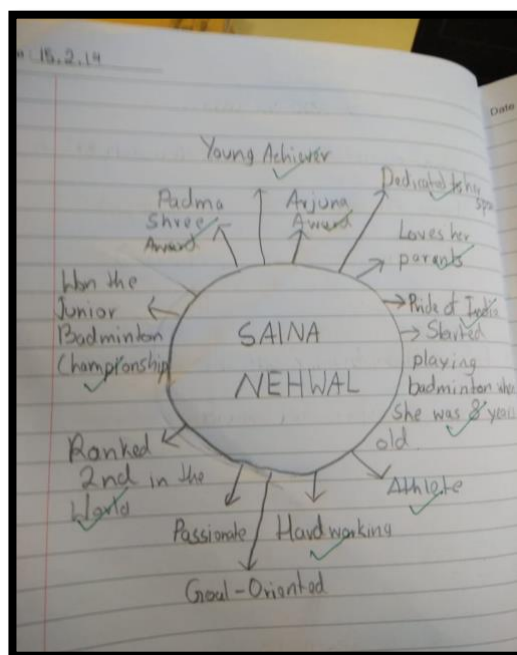 15.2.14
Date
Young Achiever
Padma
Shree
Award
Arjuna
Award
Dedicated to her
Loves her
parents
Pride of India
Started
playing
badminton when
She was 8 years
old.
Athlete
Hard working
Goal-Oriented
Passionate
Ranked
2nd in the
World
Won the
Junior
Badminton
Championship
SAINA
NEHWAL